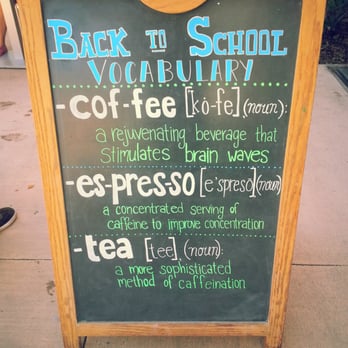 BACK TO SCHOOL
VOCABULARY
-cof-fee [kô-fe] (noun):
a rejuvenating beverage that
stimulates brain waves
-es-pres-so [e'spreso] (noun)
a concentrated serving of
caffeine to improve concentration
-tea [tee], (noun):
a more sophisticated
method of caffeination